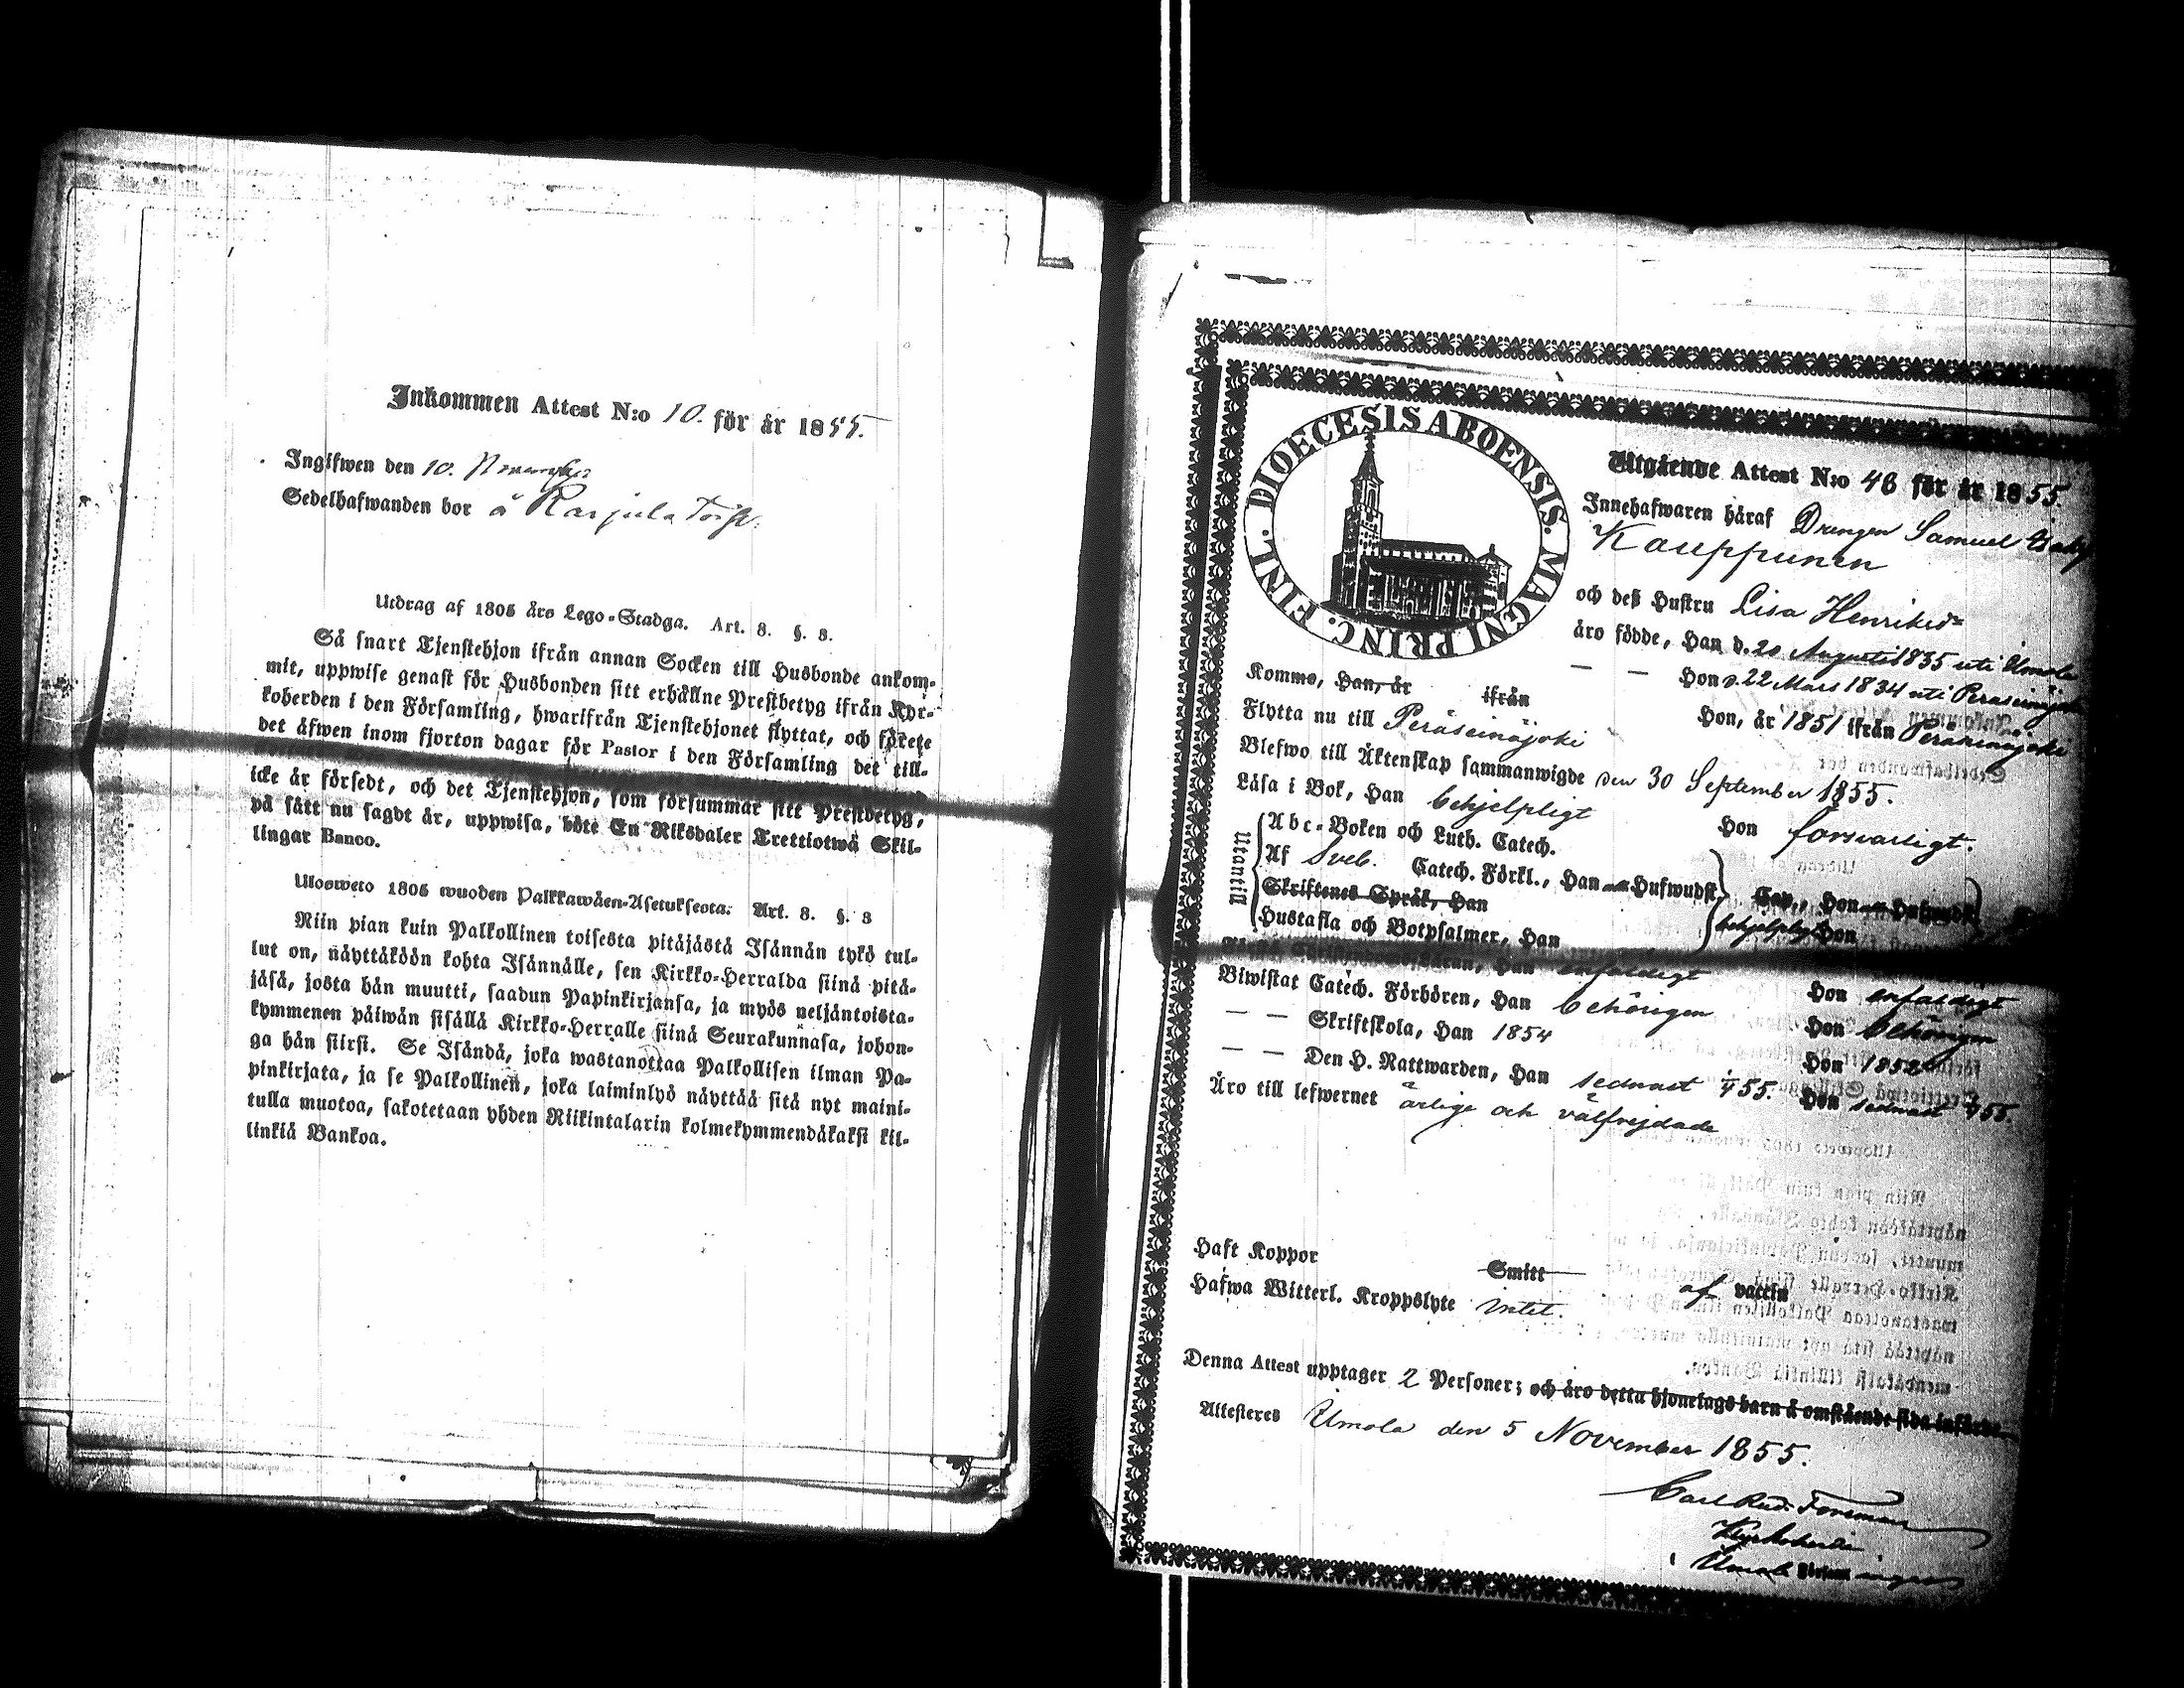 Inkommen Attest N:o 10. för år 1855.
Ingifwen den 10. November
Sedelhafwanden bor å Karjula Torp.
Utdrag af 1805 års Lego-Stadga. Art. 8. §. 8.
Så snart Tjenstehjon ifrån annan Socken till Husbonde ankom-
mit, uppwise genast för Husbonden sitt erhållne Prestbetyg ifrån Kyr-
koherden i den Församling, hwarifrån Tjenstehjonet flyttat, och förete
det äfwen inom fjorton dagar för Pastor i den Församling det till-
icke är försedt, och det Tjenstehjon, som försummar sitt Prestbetyg,
på sätt nu sagdt är, uppwisa, böte En Riksdaler Trettiotwå Skil-
lingar Banco.
Ulosweto 1805 wuoden Palkkawäen-Asetuksesta. Art. 8. §. 8
Niin pian kuin Palkollinen toisesta pitäjästä Isännän tykö tul-
lut on, näyttäköön kohta Isännälle, sen Kirkko-Herralda siinä pitä-
jäsä, josta hän muutti, saadun Papinkirjansa, ja myös neljäntoista-
kymmenen päiwän sisällä Kirkko-Herralle siinä Seurakunnasa, johon-
ga hän siirsi. Se Isändä, joka wastanottaa Palkollisen ilman Pa-
pinkirjata, ja se Palkollinen, joka laiminlyö näyttää sitä nyt maini-
tulla muotoa, sakotetaan yhden Riikintalarin kolmekymmendäkaksi kil-
linkiä Bankoa.
DIOECESIS ABOENSIS. MAGNI PRINC. FINL.
Utgående Attest N:o 46 för år 1855.
Innehafwaren häraf Drängen Samuel
Kauppunen
och deß Hustru Lisa Henriksd:r
äro födde, Han d. 20 Augusti 1835 uti Urnola
— — Hon d. 22 Mars 1834 uti Peräseinäjoki
Komme, Han, år ifrån Hon, år 1851 ifrån Peräseinäjoki
Flytta nu till Peräseinäjoki
Blefwo till Äktenskap sammanwigde den 30 September 1855.
Läsa i Bok, Han behjelpligt Hon försvarligt.
Utantill
Abc-Boken och Luth. Catech.
Af Sveb. Catech. Förkl., Han Hufwudst. Cap., Hon Hufwudst.
Skriftenes Språk, Han
Hustafla och Botpsalmer, Han behjelpligt Hon
Han enfaldigt Hon enfaldigt
Biwistat Catech. Förhören, Han behörigen Hon behörigen
— — Skriftskola, Han 1854 Hon 1852
— — Den H. Nattwarden, Han sednast 55. Hon sednast 55.
Äro till lefwernet ärlige och välfrejdade
Haft Koppor Smitt af vaccin
Hafwa Witterl. Kroppslyte intet.
Denna Attest upptager 2 Personer; och äro detta hjonelags barn å omstående sida införde
Attesteres Urnola den 5 November 1855.
Carl Rud. Forsman
Kyrkoherde